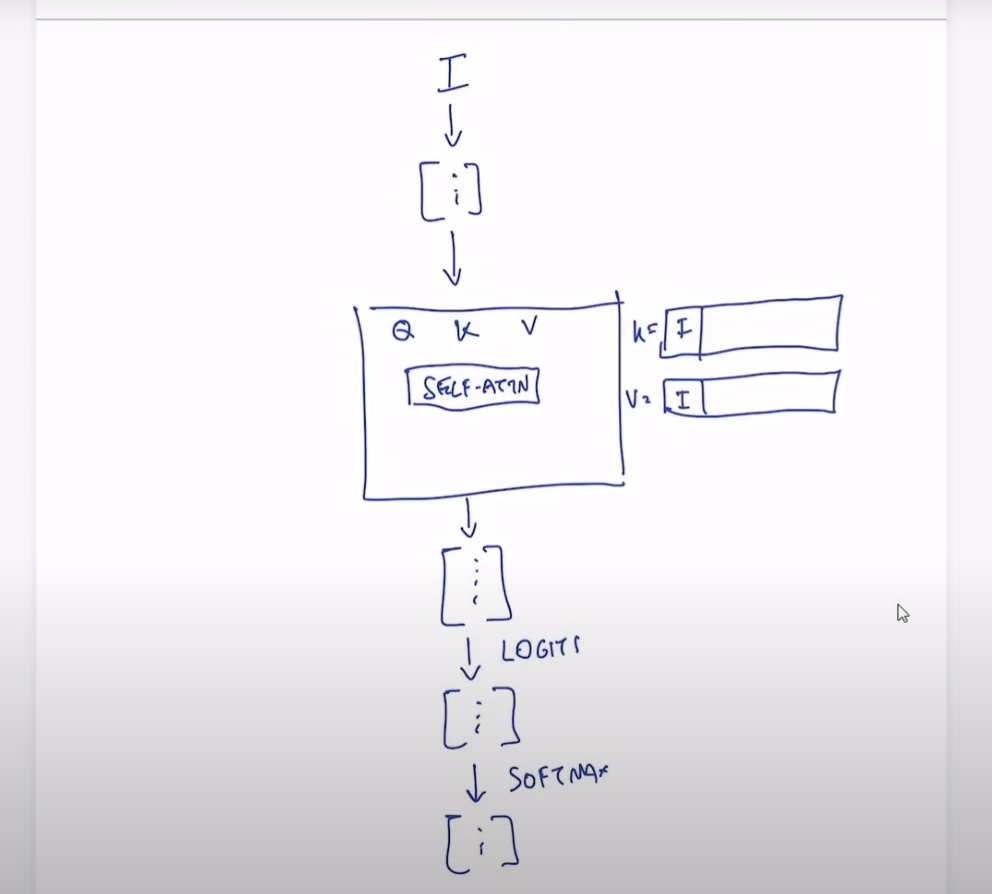 I
[⋮]
Q K V
K= I
SELF-ATTN
V= I
[⋮]
LOGITS
[⋮]
SOFTMAX
[⋮]